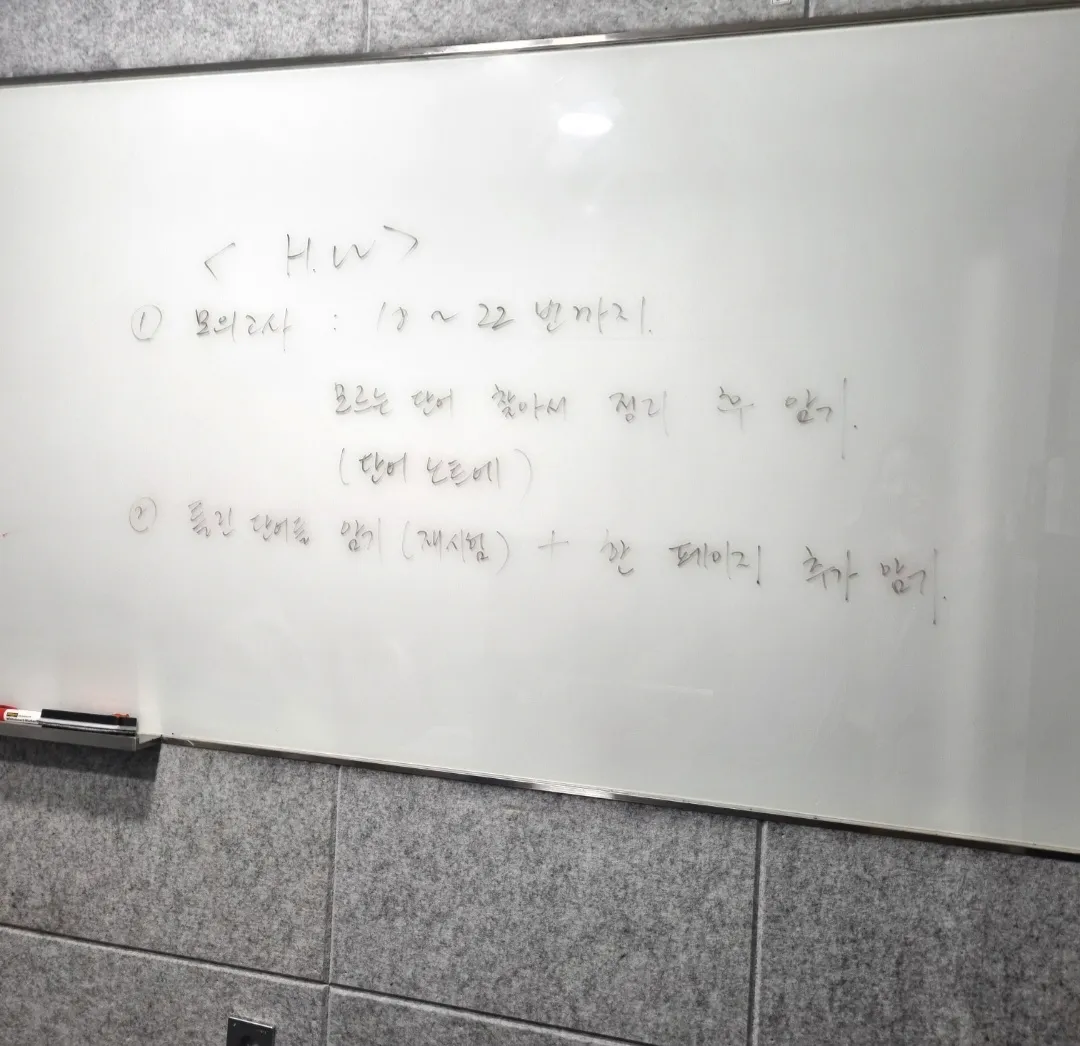 < H.W >
① 모의고사 : 18 ~ 22 번까지.
모르는 단어 찾아서 정리 후 암기.
(단어 노트에)
② 틀린 단어들 암기 (재시험) + 한 페이지 추가 암기.